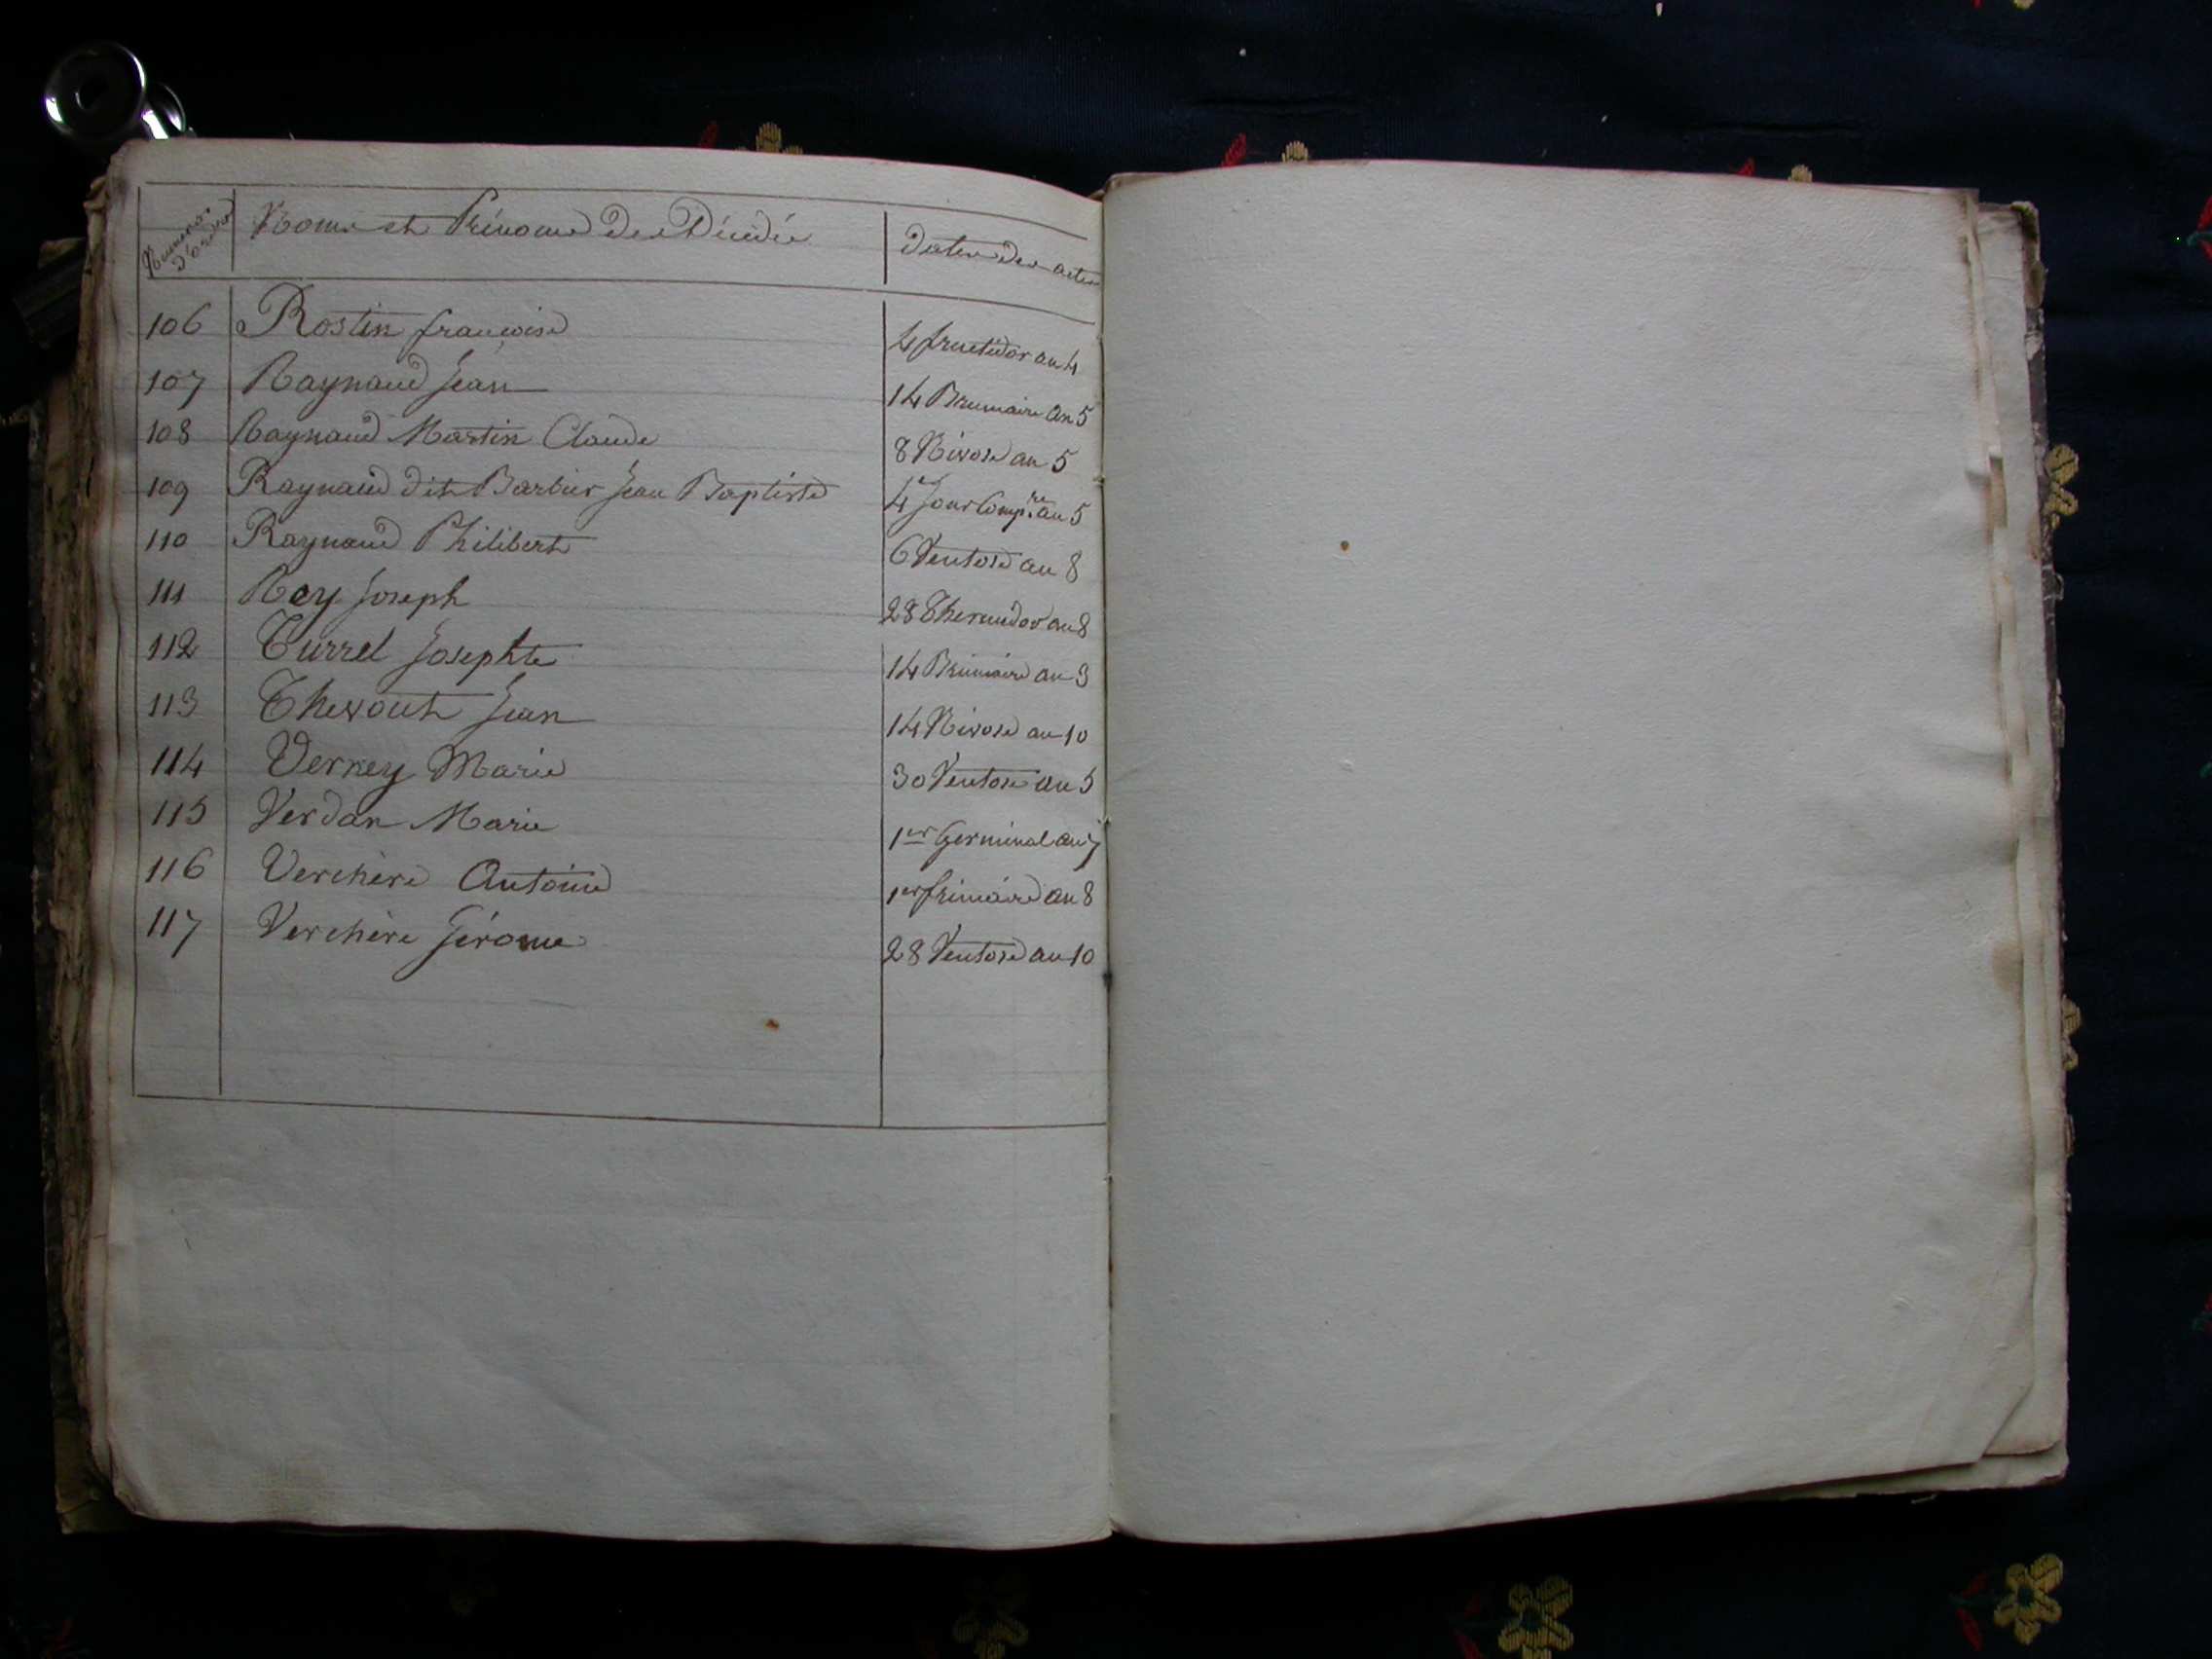 Numéros d'ordre Noms et Prénoms des Décédés Dates des actes
106 Rostin françoise 4 fructidor an 4
107 Raynaud Jean 14 Brumaire an 5
108 Raynaud Martin Claude 8 Nivose an 5
109 Raynaud dit Barbier Jean Baptiste 4e Jour Comp.re an 5
110 Raynaud Philibert 6 Ventose an 8
111 Rey Joseph 28 Thermidor an 8
112 Turrel Josephte 14 an 3
113 Thevout Jean 14 Nivose an 10
114 Verney Marie 30 Ventose an 5
115 Verdan Marie 1er Germinal an 7
116 Verchère Antoine 1er frimaire an 8
117 Verchère Jérome 28 Ventose an 10